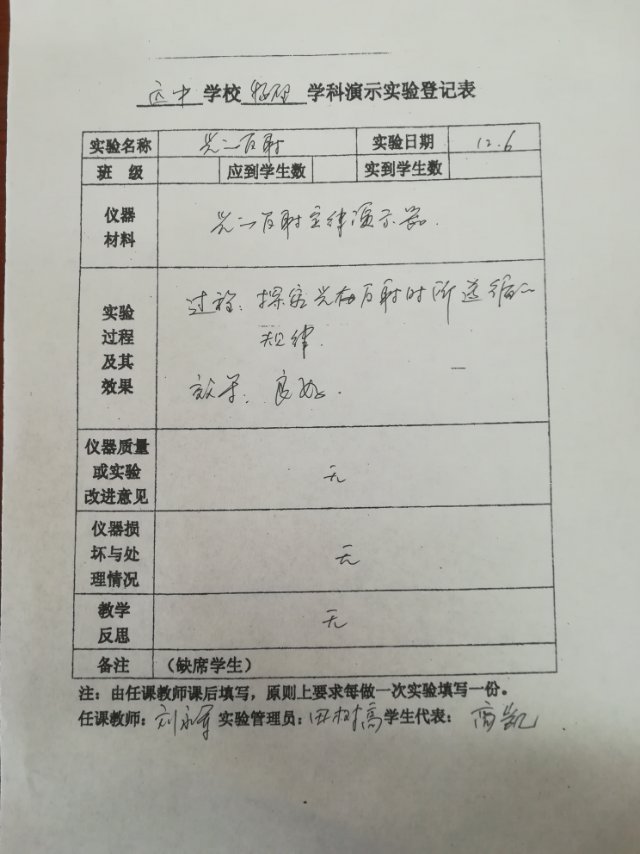 学校 物理 学科演示实验登记表
实验名称 光的反射 实验日期 12.6
班 级 应到学生数 实到学生数
仪器
材料
光的反射定律演示器.
实验
过程
及其
效果
过程: 探究光在反射时所遵循的
规律.
效果: 良好.
仪器质量
或实验
改进意见
无
仪器损
坏与处
理情况
无
教学
反思
无
备注 (缺席学生)
注: 由任课教师课后填写, 原则上要求每做一次实验填写一份。
任课教师: 刘永军 实验管理员: 田树高 学生代表: 商凯